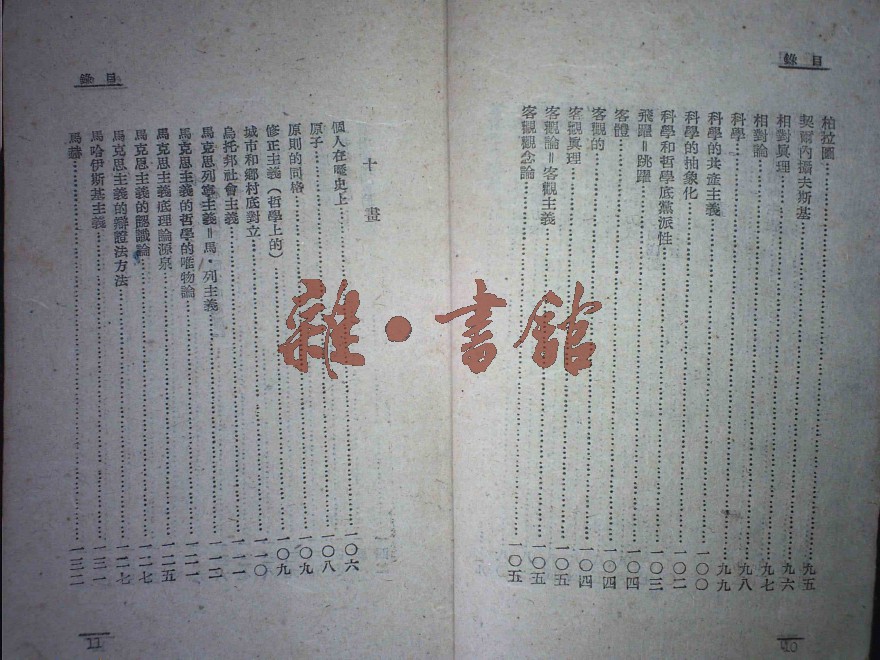 錄目
柏拉圖……九五
契爾內攝夫斯基……九六
相對眞理……九七
相對論……九八
科學……九九
科學的共產主義……一〇〇
科學的抽象化……一〇二
科學和哲學底黨派性……一〇三
飛躍＝跳躍……一〇四
客體……一〇四
客觀的……一〇四
客觀眞理……一〇五
客觀論＝客觀主義……一〇五
客觀觀念論……一〇五
10
錄目
十畫
個人在歷史上……一〇六
原子……一〇八
原則的同格……一〇九
修正主義（哲學上的）……一〇九
城市和鄉村底對立……一一〇
烏托邦社會主義……一一一
馬克思列寧主義＝馬·列主義……一一二
馬克思主義的哲學的唯物論……
馬克思主義底理論源泉……一二五
馬克思主義的認識論……一二七
馬克思主義的辯證法方法……一二七
馬哈伊斯基主義……一三一
馬赫……一三二
11
雜·書館